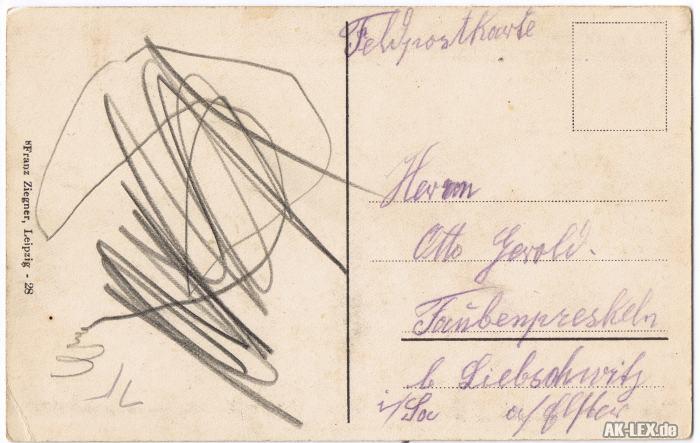 Feldpostkarte
Herrn
Otto Gerold.
Taubenpreskeln
b Liebschwitz
i/Sa a/Elster
*Franz Ziegner, Leipzig - 28
AK-LEX.de